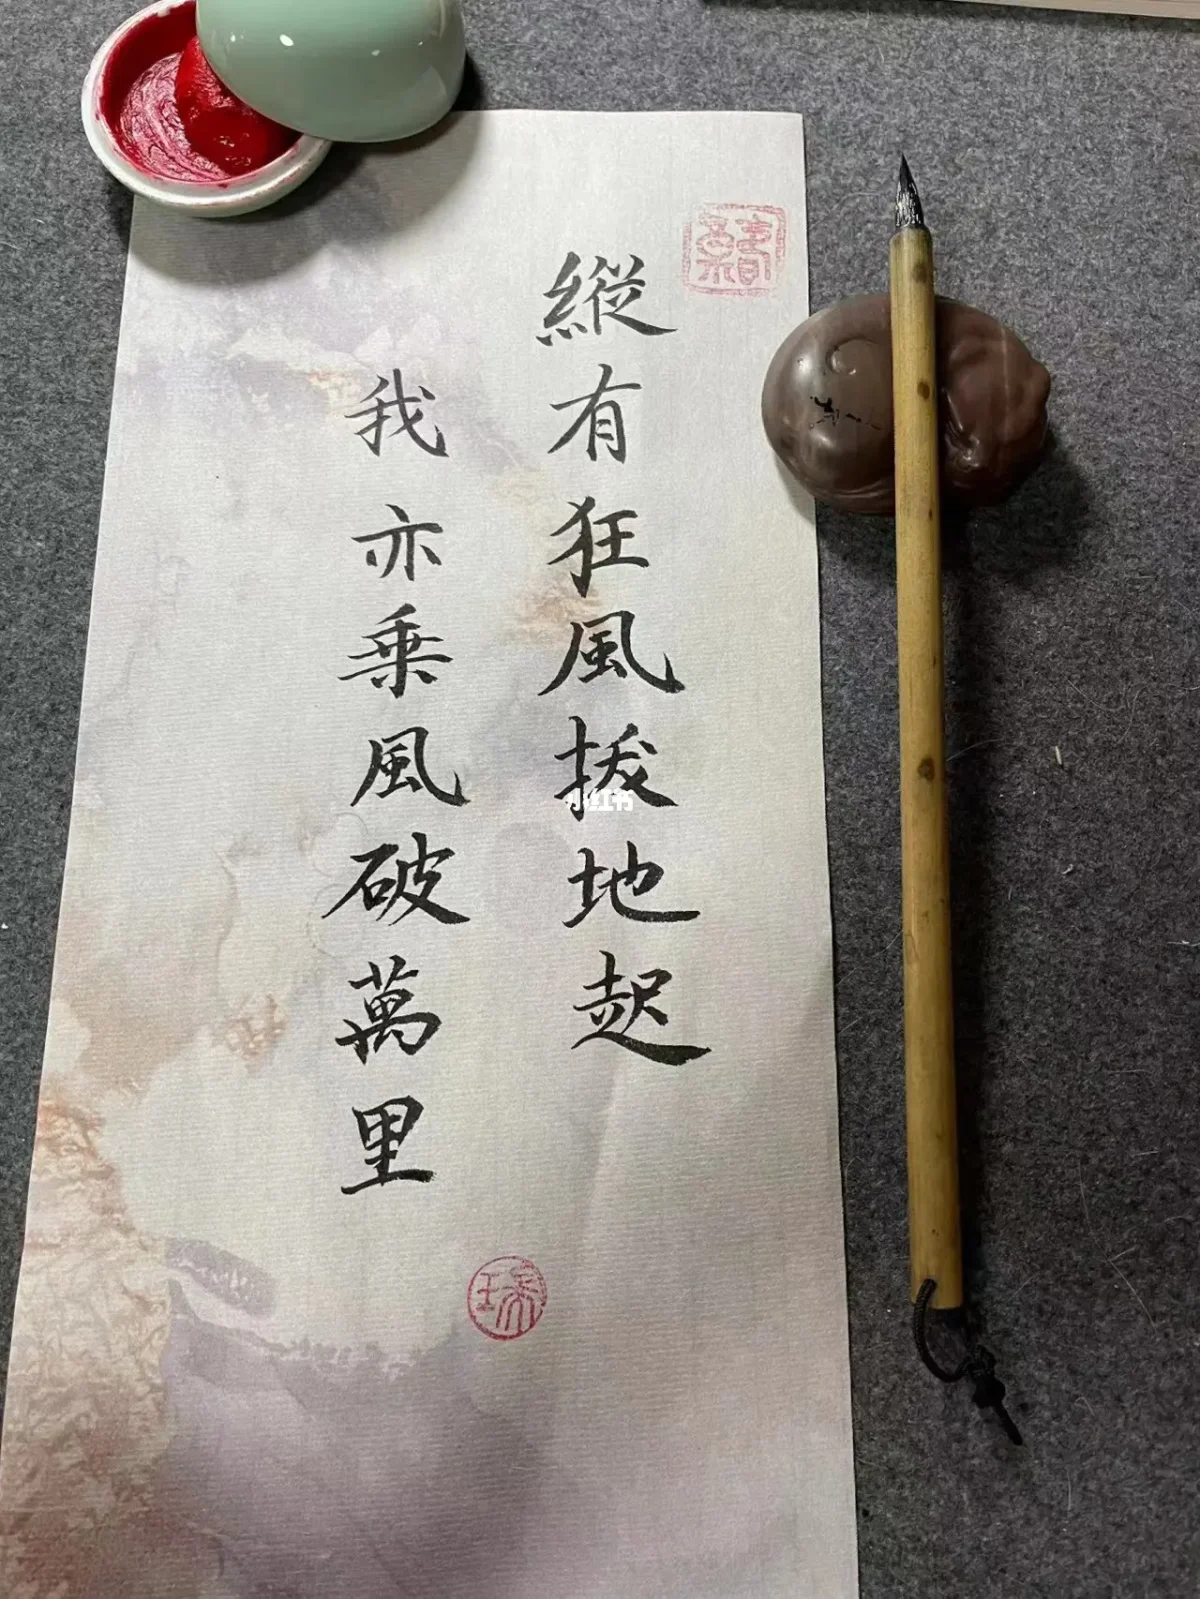 縱有狂風拔地起
我亦乘風破萬里
小红书